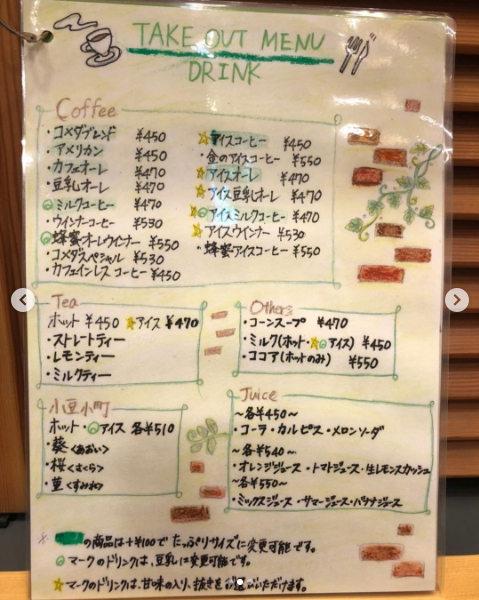 TAKE OUT MENU
DRINK
Coffee
・コメダブレンド ¥450
・アメリカン ¥450
・カフェオーレ ¥470
・豆乳オーレ ¥470
・ミルクコーヒー ¥470
・ウインナーコーヒー ¥530
・蜂蜜オーレウインナー ¥550
・コメダスペシャル ¥530
・カフェインレスコーヒー ¥450
☆アイスコーヒー ¥450
・金のアイスコーヒー ¥550
☆アイスオーレ ¥470
☆アイス豆乳オーレ ¥470
☆アイスミルクコーヒー ¥470
☆アイスウインナー ¥530
・蜂蜜アイスコーヒー ¥550
Tea
ホット ¥450 ☆アイス ¥470
・ストレートティー
・レモンティー
・ミルクティー
Others
・コーンスープ ¥470
・ミルク(ホット・☆アイス) ¥450
・ココア(ホットのみ) ¥550
小豆小町
ホット・アイス 各¥510
・葵<あおい>
・桜<さくら>
・菫<すみれ>
Juice
〜各¥450〜
・コーラ・カルピス・メロンソーダ
〜各¥540〜
・オレンジジュース・トマトジュース・生レモンスカッシュ
〜各¥550〜
・ミックスジュース・サマージュース・バナナジュース
の商品は+¥100で たっぷりサイズに変更可能です。
マークのドリンクは、豆乳に変更可能です。
☆マークのドリンクは、甘味の入り、抜きを いただけます。